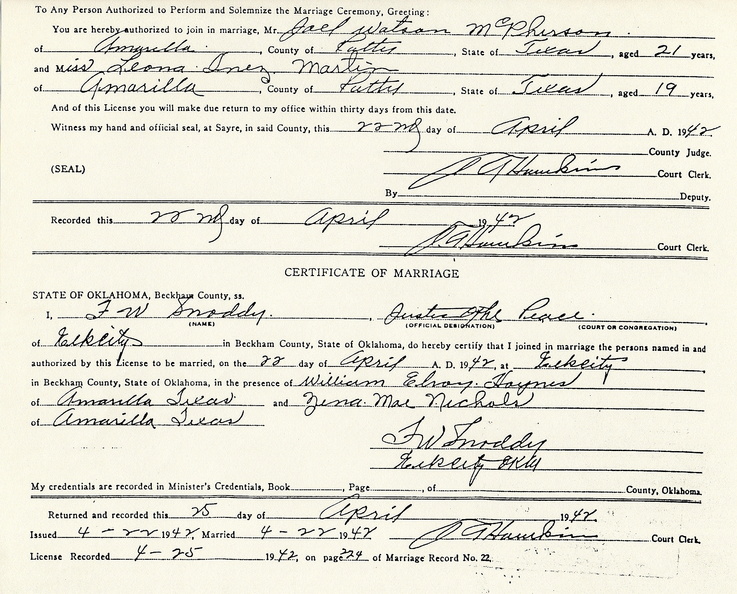 To Any Person Authorized to Perform and Solemnize the Marriage Ceremony, Greeting:
You are hereby authorized to join in marriage, Mr. Joel Watson McPherson
of Amarilla, County of Potter, State of Texas, aged 21 years,
and Miss Leona Inez Martin
of Amarilla, County of Potter, State of Texas, aged 19 years,
And of this License you will make due return to my office within thirty days from this date.
Witness my hand and official seal, at Sayre, in said County, this 22nd day of April A. D. 1942
County Judge.
(SEAL) Court Clerk.
By Deputy.
Recorded this 22nd day of April 1942
Court Clerk.
CERTIFICATE OF MARRIAGE
STATE OF OKLAHOMA, Beckham County, ss.
I, F W Snoddy, Justice of the Peace
(NAME) (OFFICIAL DESIGNATION) (COURT OR CONGREGATION)
of Elk city in Beckham County, State of Oklahoma, do hereby certify that I joined in marriage the persons named in and
authorized by this License to be married, on the 22 day of April A. D. 1942, at Elk city
in Beckham County, State of Oklahoma, in the presence of William Elroy Haynes
of Amarilla Texas and Zena Mae Nichols
of Amarilla Texas
F W Snoddy
Elk city OKla
My credentials are recorded in Minister's Credentials, Book , Page , of County, Oklahoma.
Returned and recorded this 25 day of April 1942
Issued 4-22 1942, Married 4-22 1942 Court Clerk.
License Recorded 4-25 1942, on page 224 of Marriage Record No. 22.